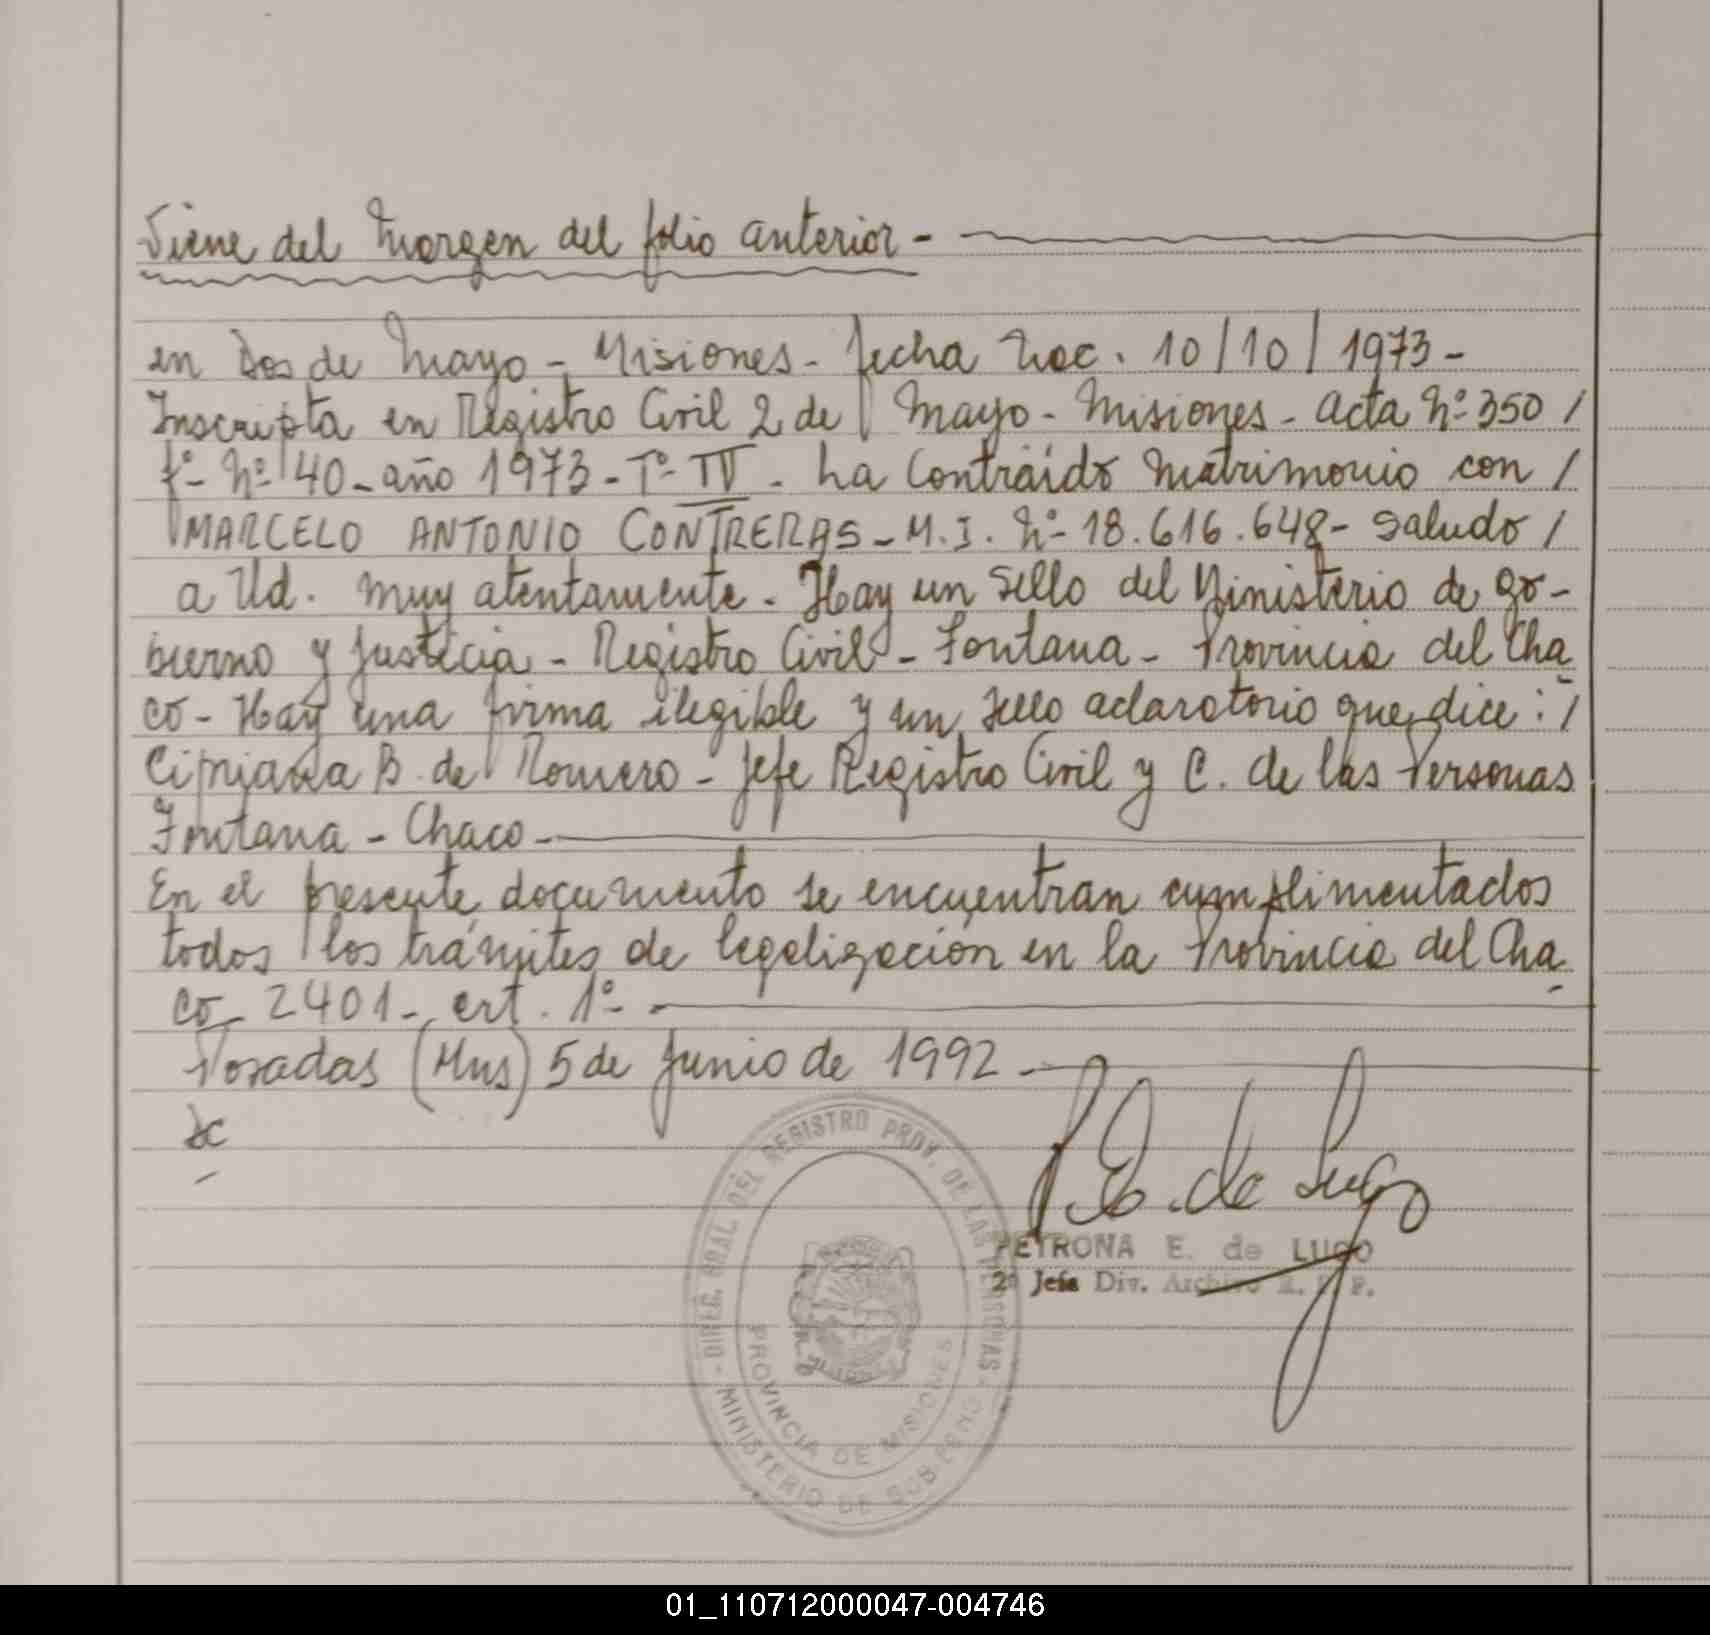 Viene del Margen del folio anterior -
en Dos de Mayo - Misiones - fecha Nac. 10/10/1973 -
Inscripta en Registro Civil 2 de Mayo - Misiones - Acta Nº 350 /
fº - Nº 140 - año 1973 - Tº - IV - ha Contraído Matrimonio con /
MARCELO ANTONIO CONTRERAS - M.I. Nº - 18.616.648 - Saludo /
a Ud. muy atentamente - Hay un Sello del Ministerio de Go-
bierno y Justicia - Registro Civil - Fontana - Provincia del Cha
co - Hay una firma ilegible y un sello aclaratorio que dice : /
Cipriana B. de Romero - Jefe Registro Civil y C. de las Personas
Fontana - Chaco -
En el presente documento se encuentran cumplimentados
todos los trámites de legalización en la Provincia del Cha
co - 2401 - art. 1º - -
Posadas (Mns) 5 de Junio de 1992 -
P.E. de Lugo
PETRONA E. de LUGO
2º Jefe Div. Archivo R. P. P.
- DIREC. GRAL. DEL REGISTRO PROV. DE LAS PERSONAS -
MINISTERIO DE GOBIERNO
PROVINCIA DE MISIONES
01_110712000047-004746